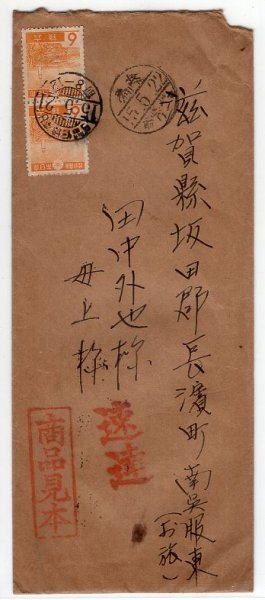 滋賀縣坂田郡長濱町南呉服東
(お旅)
田中外也様
母上様
速達
商品見本
15.5.22
6
6